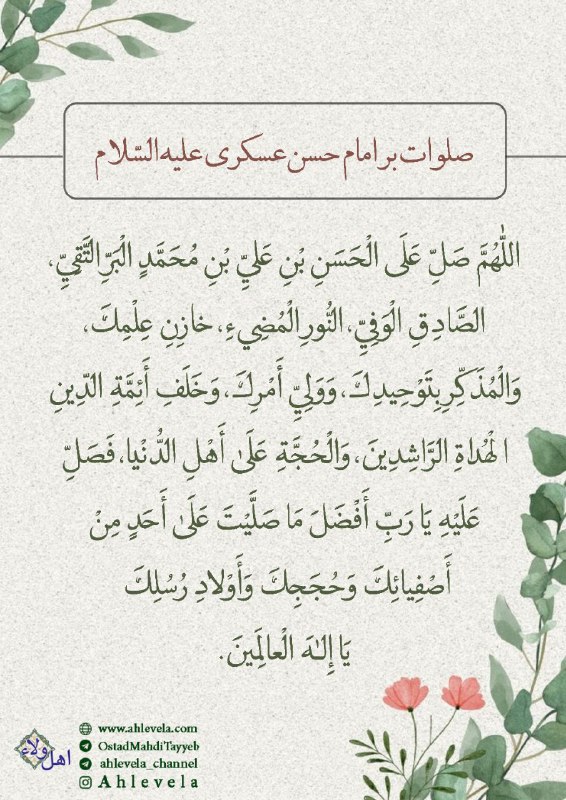 صلوات بر امام حسن عسکری علیه السّلام
اللّٰهُمَّ صَلِّ عَلَى الْحَسَنِ بْنِ عَلِيِّ بْنِ مُحَمَّدٍ الْبَرِّ التَّقِيِّ،
الصَّادِقِ الْوَفِيِّ، النُّورِ الْمُضِيءِ، خازِنِ عِلْمِكَ،
وَالْمُذَكِّرِ بِتَوْحِيدِكَ، وَوَلِيِّ أَمْرِكَ، وَخَلَفِ أَئِمَّةِ الدِّينِ
الْهُداةِ الرَّاشِدِينَ، وَالْحُجَّةِ عَلَىٰ أَهْلِ الدُّنْيا، فَصَلِّ
عَلَيْهِ يَا رَبِّ أَفْضَلَ مَا صَلَّيْتَ عَلَىٰ أَحَدٍ مِنْ
أَصْفِيائِكَ وَحُجَجِكَ وَأَوْلادِ رُسُلِكَ
يَا إِلٰهَ الْعالَمِينَ.
اهل ولاء
www.ahlevela.com
OstadMahdiTayyeb
ahlevela_channel
Ahlevela